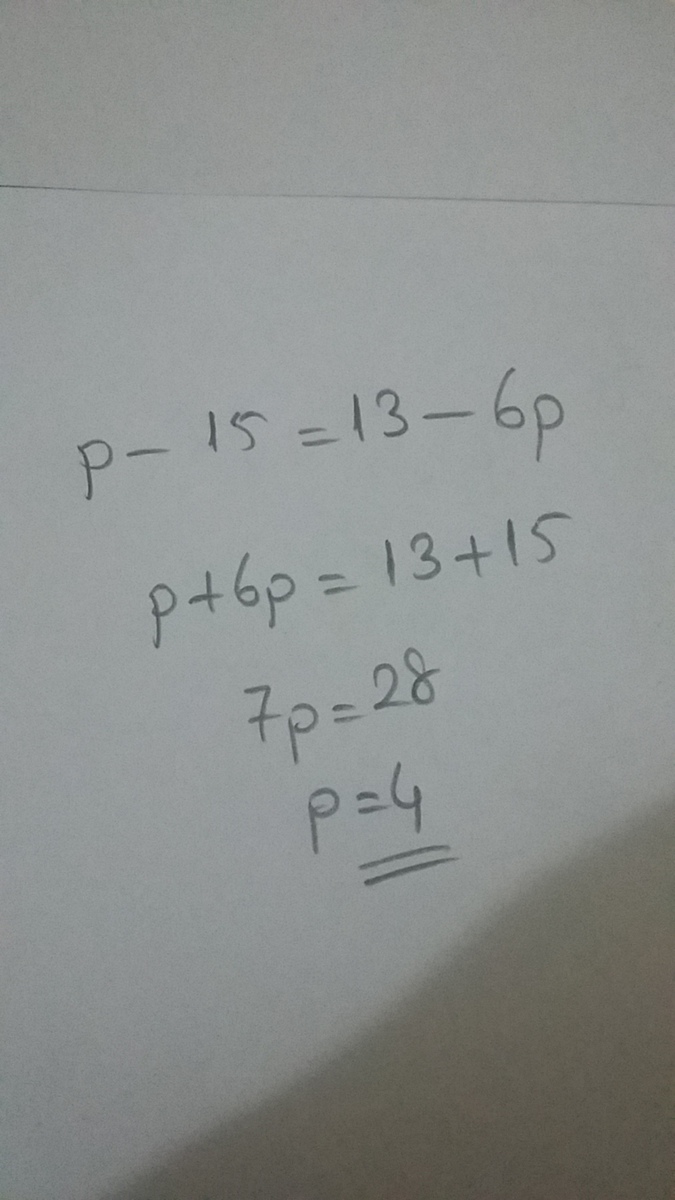 p - 15 = 13 - 6p
p + 6p = 13 + 15
7p = 28
p = 4